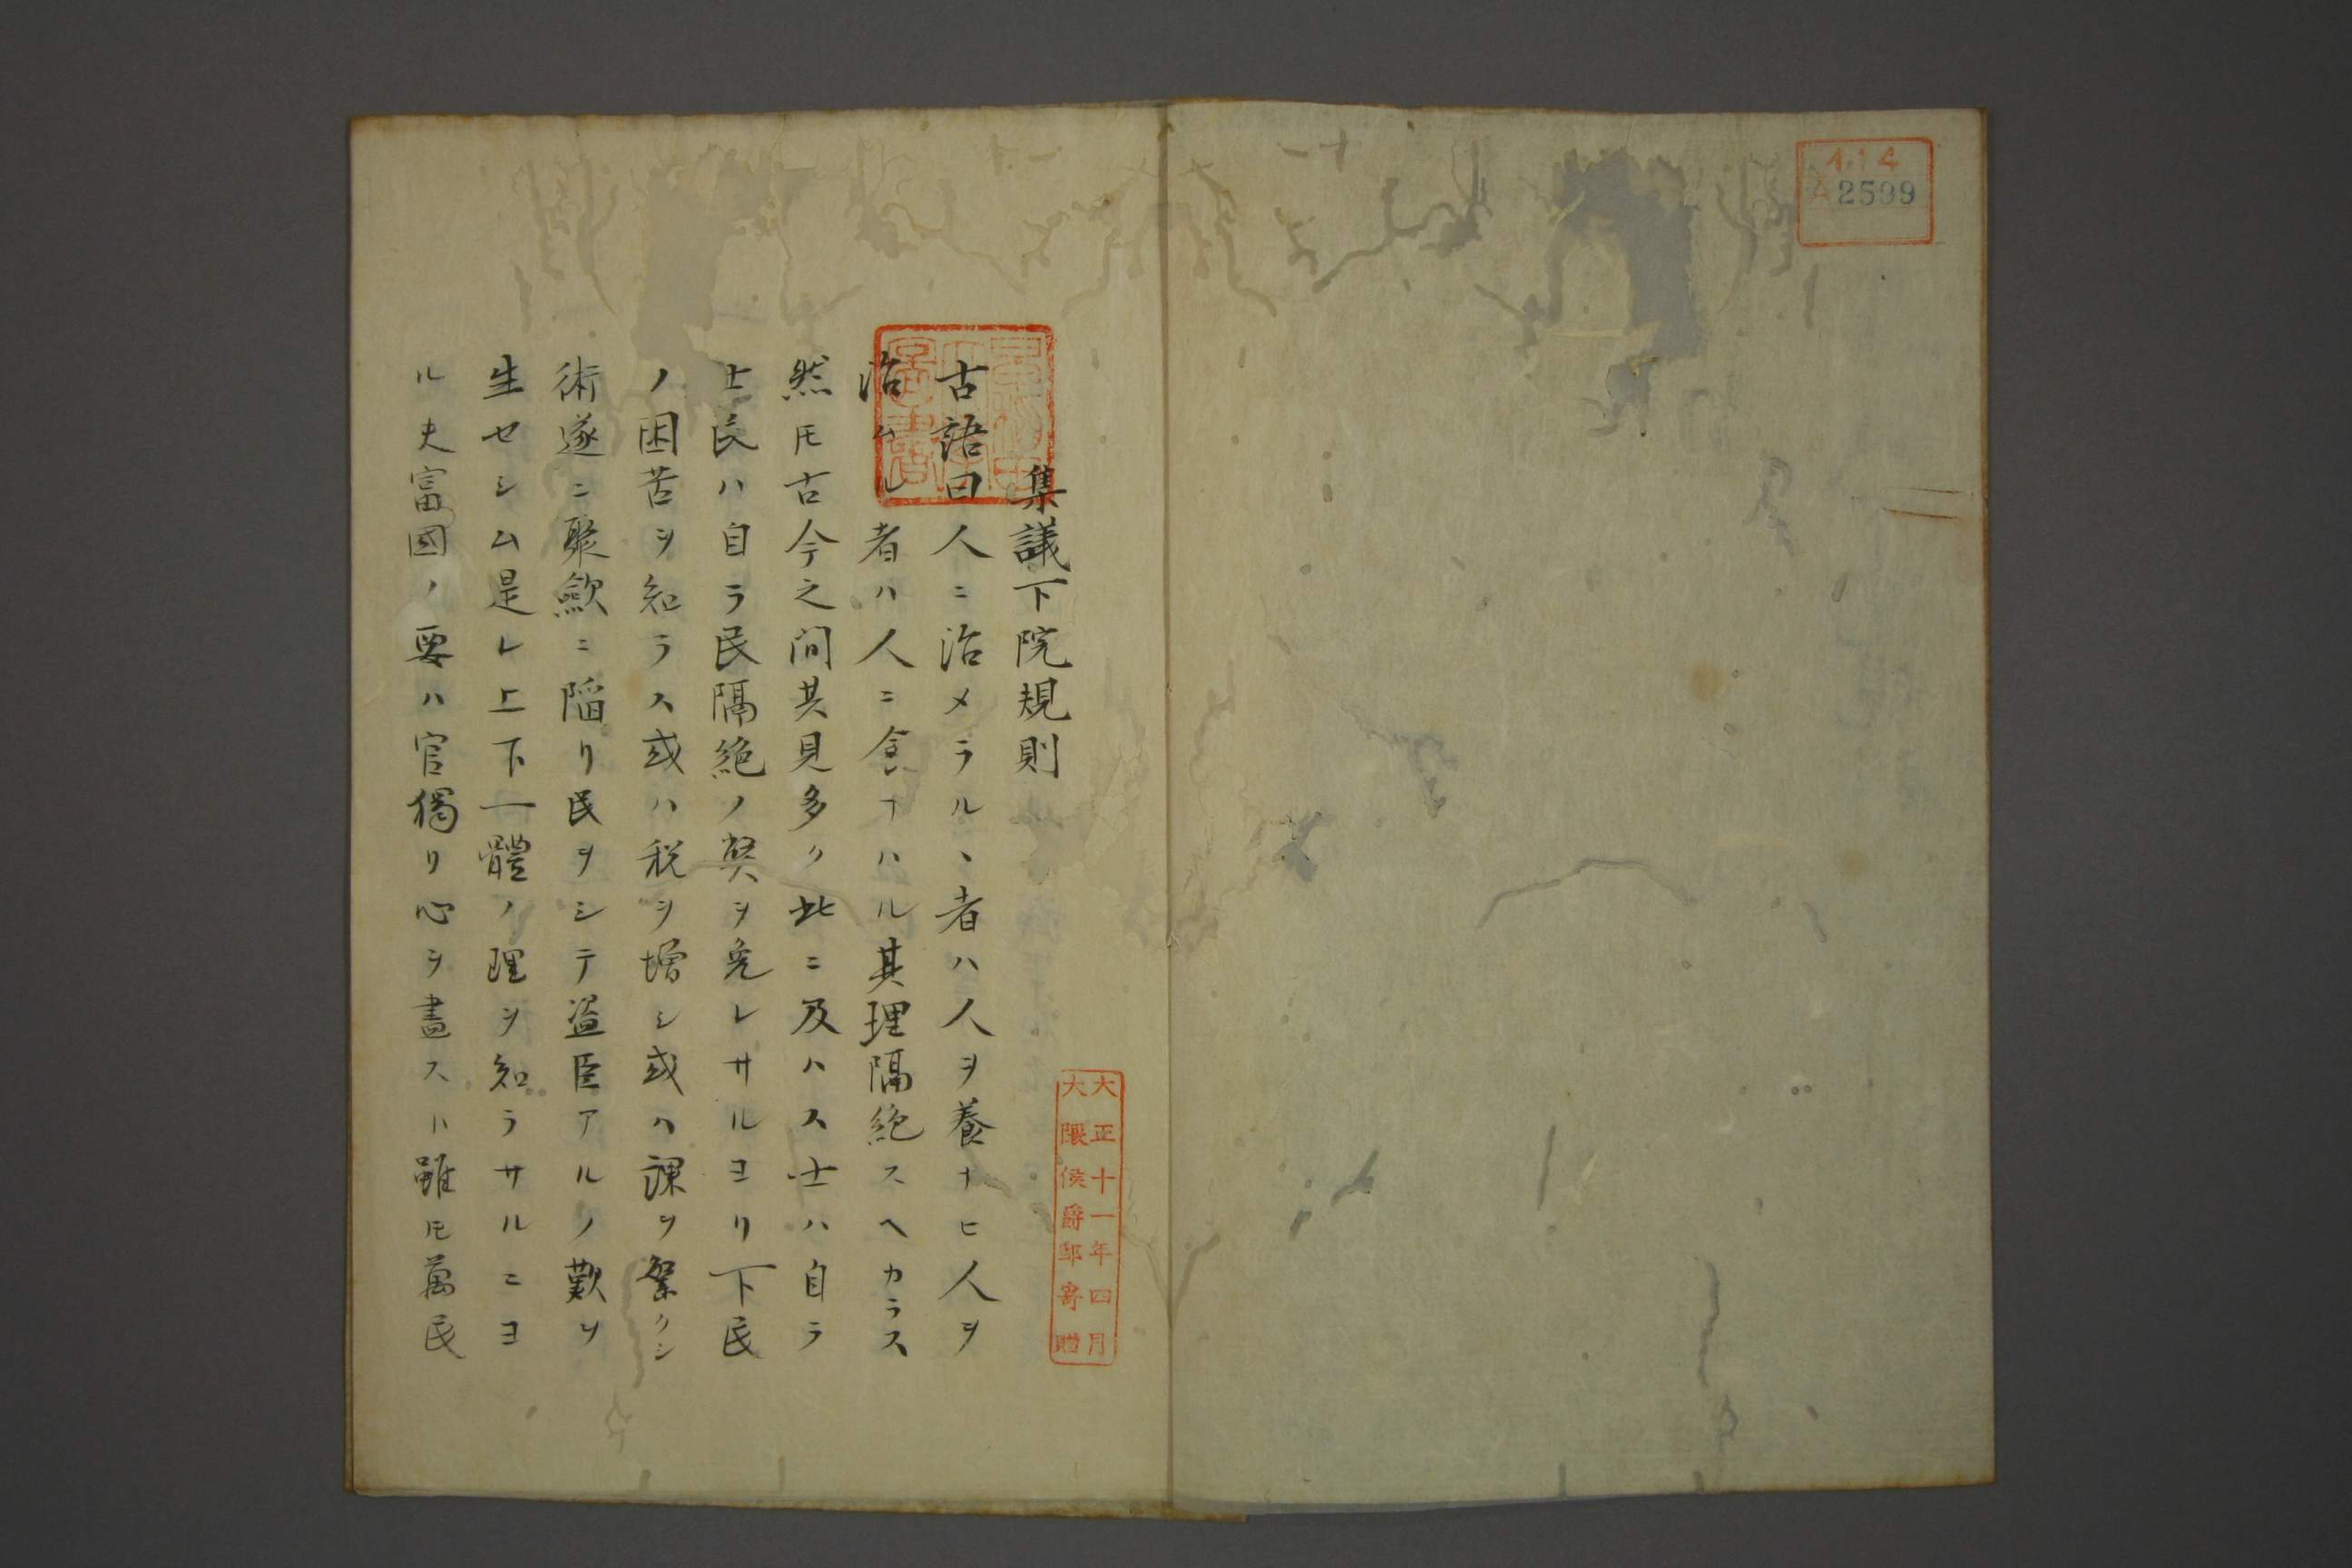 イ14
A2599
集議下院規則
古語曰人ニ治メラルヽ者ハ人ヲ養ナヒ人ヲ
治ムル者ハ人ニ食ナハル其理隔絶スヘカラス
然𪜈古今之间其見多ク此ニ及ハス士ハ自ラ
士民ハ自ラ民隔絶ノ弊ヲ免レサルヨリ下民
ノ困苦ヲ知ラス或ハ税ヲ增シ或ハ課ヲ繁クシ
術遂ニ聚歛ニ陥リ民ヲシテ盗臣アルノ歎ヲ
生セシム是レ上下一體ノ理ヲ知ラサルニヨ
ル夫富國ノ要ハ官獨リ心ヲ盡スハ雖𪜈萬民
大正十一年四月
大隈侯爵邸寄贈